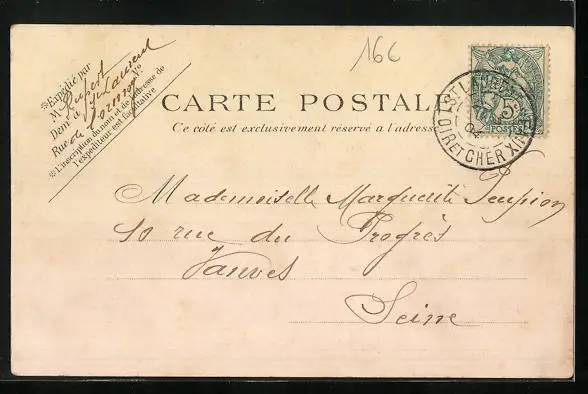 166
Expédié par
M
Demt à St Laurent
Rue de No
L'inscription du nom et de l'adresse de
l'expéditeur est facultative
CARTE POSTALE
Ce côté est exclusivement réservé à l'adresse
POSTES
LOIR ET CHER
04
Mademoiselle Marguerite
10 rue du Progrès
Vanves
Seine